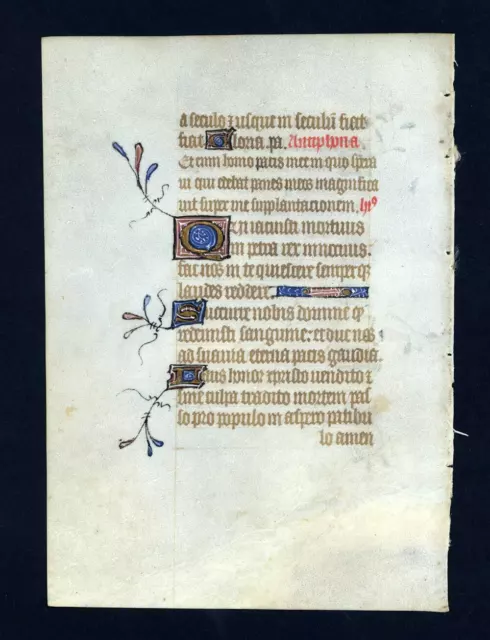 a seculo ⁊ usque in seculū fiat
fiat Gloria pa. Antiphona.
Etenim homo pacis mee in quo spera
ui qui edebat panes meos magnifica
uit super me supplantacionem. hy⁹
Qui iacuisti mortuus
in petra rex innocuus.
fac nos in te quiescere semper qꝫ
laudes reddere.
Succurre nobis domine q̄
redemisti sanguine: et duc nos
ad suauia eterna pacis gaudia.
Laus honor cpristo uendito ⁊
sine culpa tradito mortem pas
so pro populo in aspero patibu
lo amen